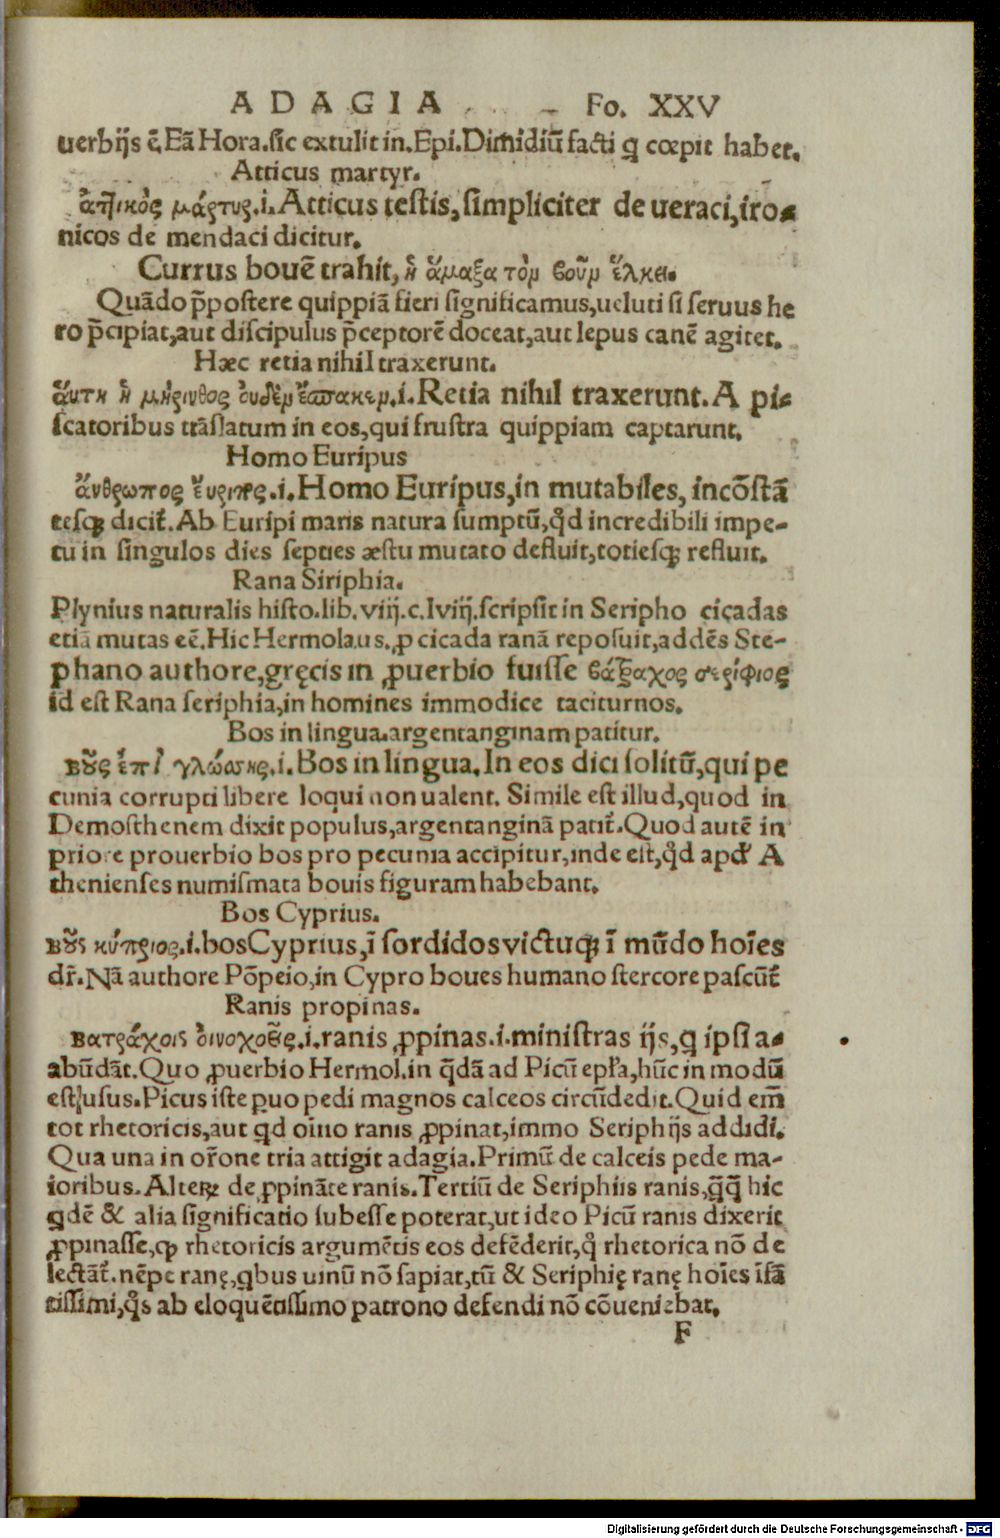 ADAGIA Fo. XXV
uerbijs ē. Eā Hora. sic extulit in. Epi. Dimidiū facti q̄ cœpit habet.
Atticus martyr.
ἀττικὸς μάρτυς. i. Atticus testis, simpliciter de ueraci, iro-
nicos de mendaci dicitur.
Currus bouē trahit, ἡ ἅμαξα τὸν βοῦν ἕλκει.
Quādo p̄postere quippiā fieri significamus, ueluti si seruus he
ro p̄cipiat, aut discipulus p̄ceptorē doceat, aut lepus canē agitet.
Hæc retia nihil traxerunt.
ἅυτη ἡ μήρινθος ὀυδὲν ἔσπακεν. i. Retia nihil traxerunt. A pi-
scatoribus trāslatum in eos, qui frustra quippiam captarunt.
Homo Euripus
ἄνθρωπος ἔυριπος. i. Homo Euripus, in mutabiles, incōstā
tesq; dicit᷑. Ab Euripi maris natura sumptū, qd̕ incredibili impe-
tu in singulos dies septies æstu mutato defluit, totiesq; refluit.
Rana Siriphia.
Plynius naturalis histo. lib. viij. c. lviij. scripsit in Seripho cicadas
etiā mutas eē. Hic Hermolaus, ꝓ cicada ranā reposuit, addēs Ste-
phano authore, gręcis in ꝓuerbio fuisse βάτραχος σερίφιος
id est Rana seriphia, in homines immodice taciturnos.
Bos in lingua. argentanginam patitur.
βοῦς ἐπὶ γλώσσης. i. Bos in lingua. In eos dici solitū, qui pe
cunia corrupti libere loqui non ualent. Simile est illud, quod in
Demosthenem dixit populus, argentanginā patit᷑. Quod autē in
priore prouerbio bos pro pecunia accipitur, inde est, qd̕ apd̕ A
thenienses numismata bouis figuram habebant.
Bos Cyprius.
βοῦς κύπριος. i. bos Cyprius, ī sordidos victuq; ī mūdo hoīes
dr̄. Nā authore Pōpeio, in Cypro boues humano stercore pascūt᷑
Ranis propinas.
βατράχοις ὀινοχοεῖς. i. ranis ꝓpinas. i. ministras ijs, q̄ ipsi a-
abūdāt. Quo ꝓuerbio Hermol. in q̄dā ad Picū epl̄a, hūc in modū
est usus. Picus iste puo pedi magnos calceos circūdedit. Quid em̄
tot rhetoricis, aut qd oino ranis ꝓpinat, immo Seriphijs addidi.
Qua una in or̄one tria attigit adagia. Primū de calceis pede ma-
ioribus. Alteꝝ de ꝓpināte ranis. Tertiū de Seriphiis ranis, q̄q̄ hic
qdē & alia significatio subesse poterat, ut ideo Picū ranis dixerit
ꝓpinasse, ꝙ rhetoricis argumētis eos defēderit, q̄ rhetorica nō de
lectāt᷑. nēpe ranę, qbus uinū nō sapiat, tū & Seriphię ranę hoīes īfā
tissimi, q̄s ab eloquētissimo patrono defendi nō cōueniebat.
F
Digitalisierung gefördert durch die Deutsche Forschungsgemeinschaft - DFG